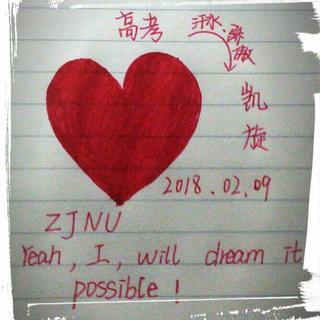 高考
汗水
凯旋
2018.02.09
ZJNU
Yeah, I, will dream it
possible !